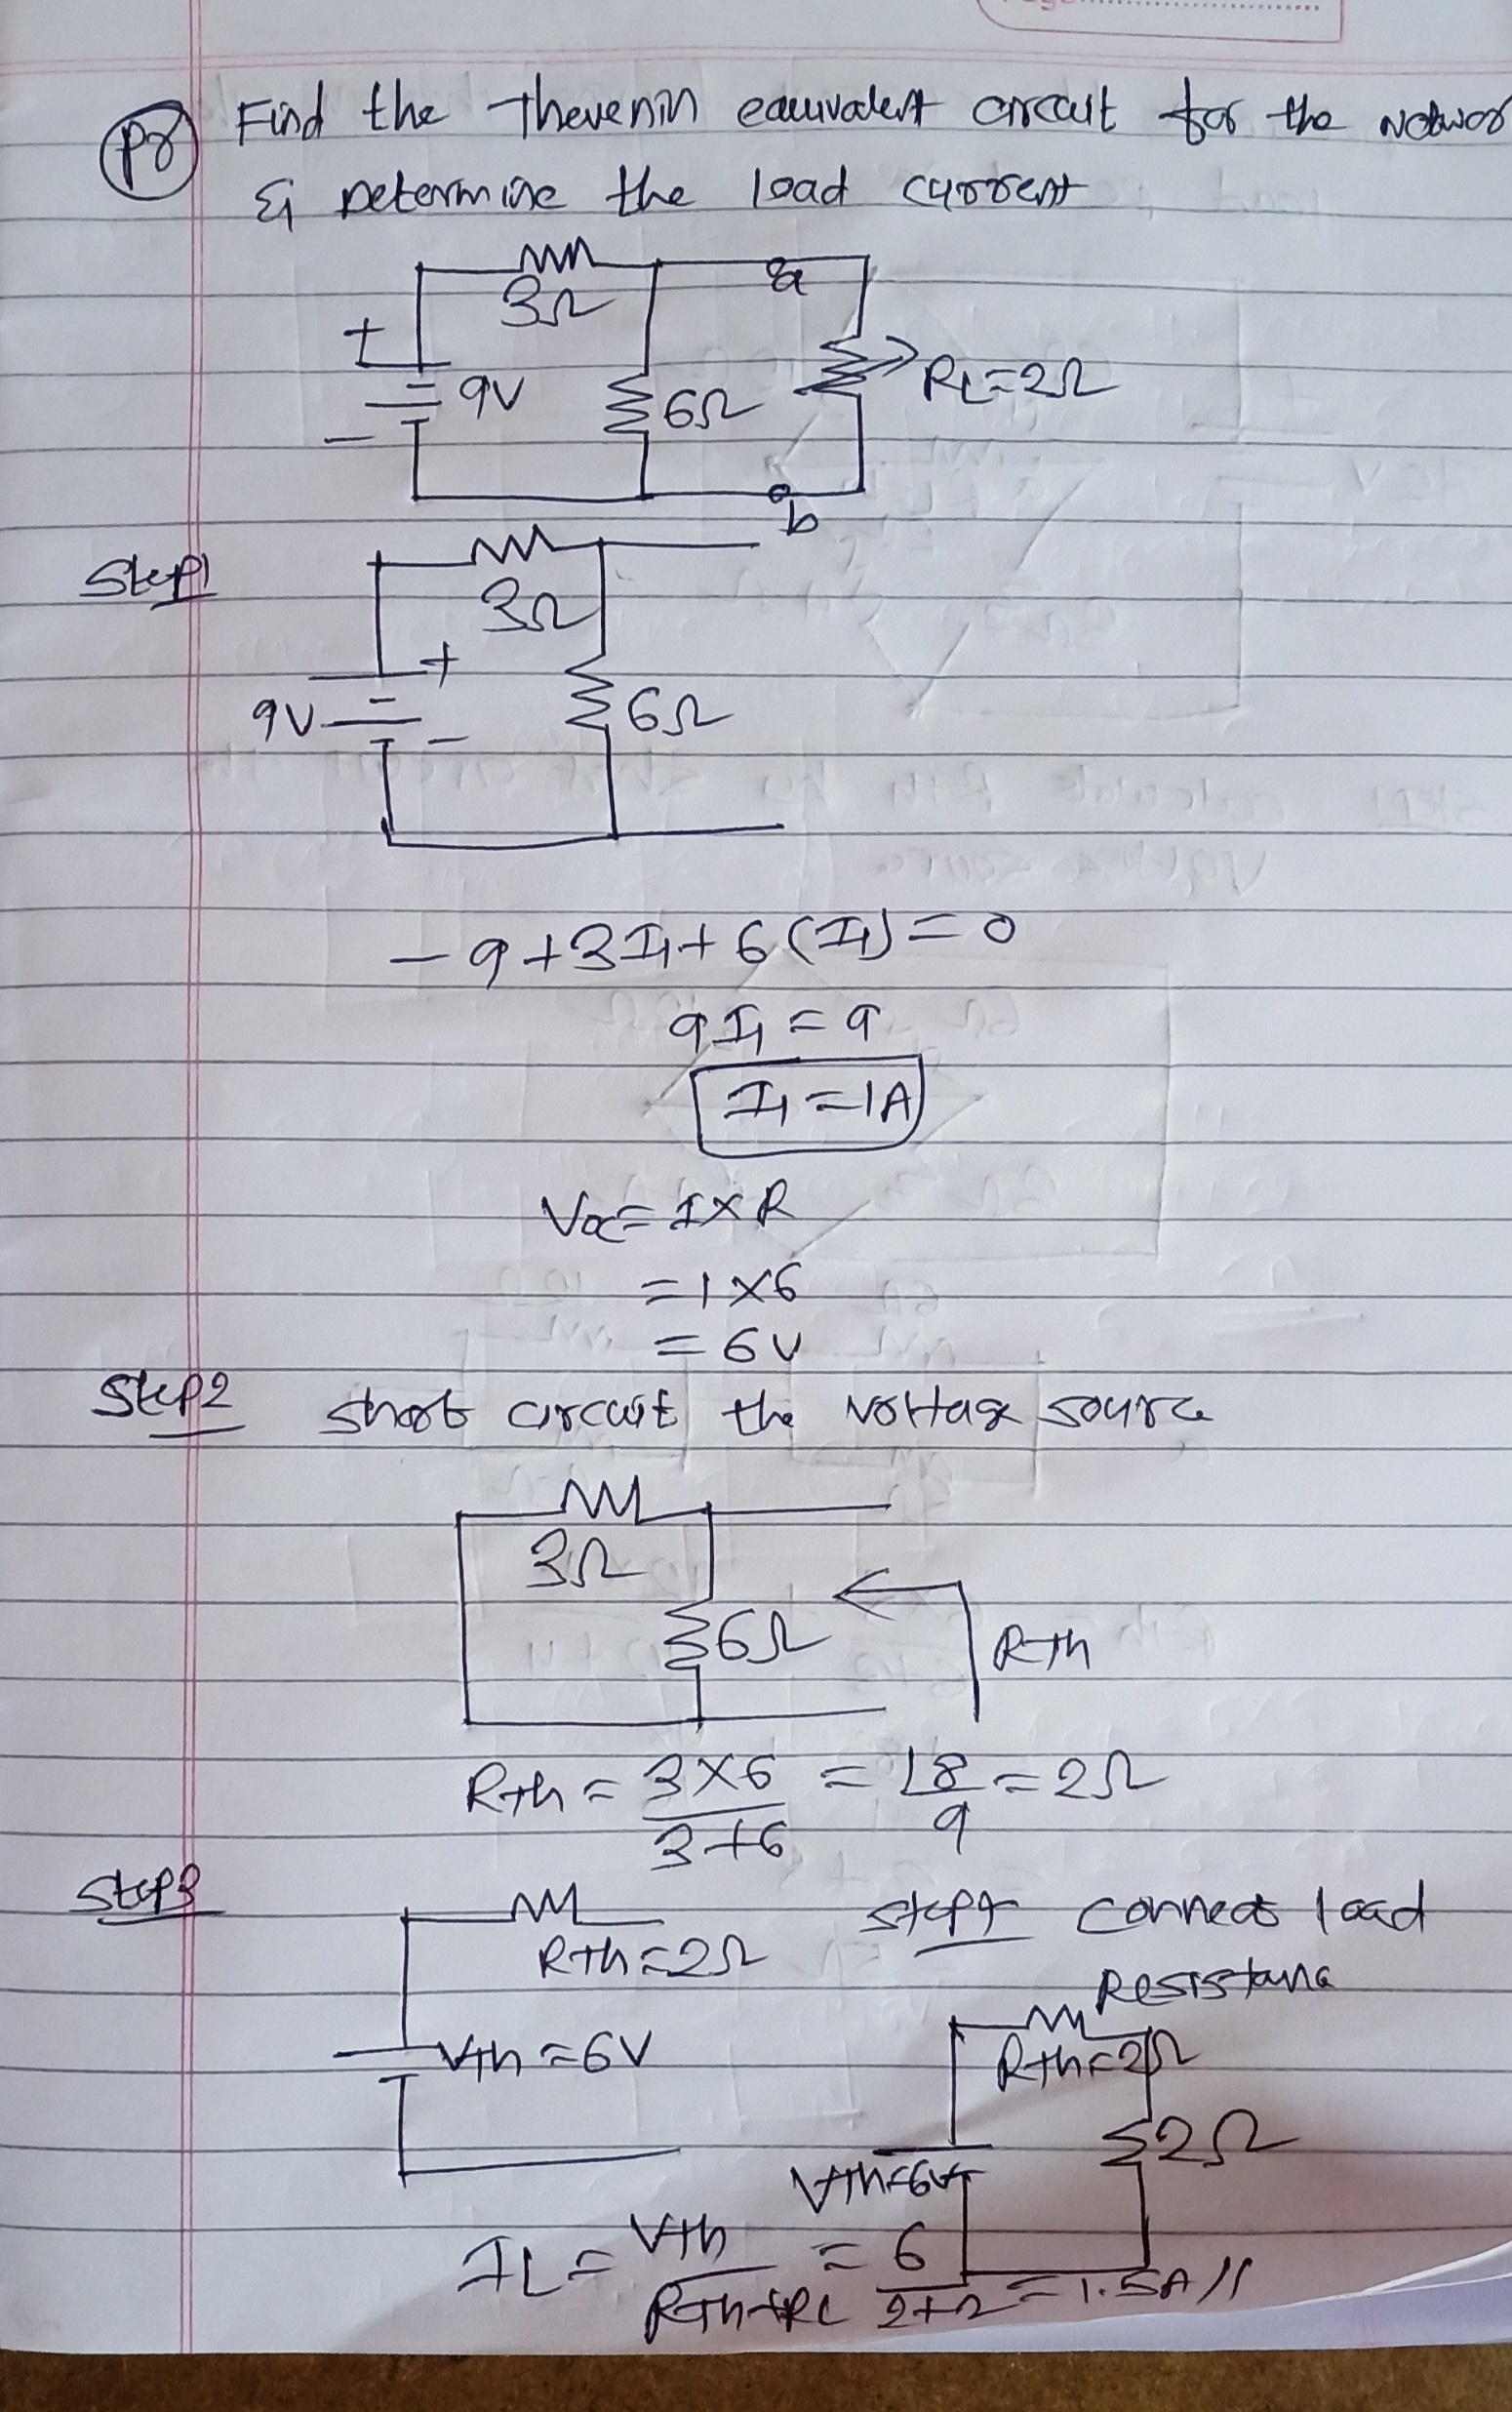 Page
Pr Find the Thevenin equivalent circuit for the Networ
& Determine the load current
3Ω
a
+
9V
6Ω
RL=2Ω
-
b
Step1
3Ω
+
9V
6Ω
-
-9+3I1+6(I1)=0
9I1=9
I1=1A
Voc=I×R
=1×6
=6V
Step2 short circuit the voltage source
3Ω
6Ω
Rth
Rth = 3×6/3+6 = 18/9 = 2Ω
Step3
Rth=2Ω
Vth=6V
Step4 connect load
Resistance
Rth=2Ω
2Ω
Vth=6V
IL = Vth/Rth+RL = 6/2+2 = 1.5A//